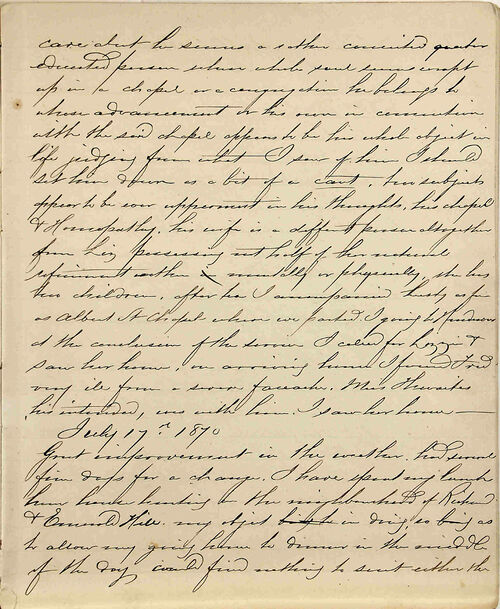 care about he seems a rather conceited quarter
educated person whose whole soul seems wrapt
up in a chapel or a congregation he belongs to
whose advancement or his own in connection
with the said chapel appears to be his whole object in
life judging from what I saw of him I should
set him down as a bit of a cant, two subjects
appear to be ever uppermost in his thoughts, his chapel
& Homeopathy, his wife is a different person altogether
from him possessing not half of the natural
refinement either mentally or physically, she has
two children, after tea I accompanied as far
as Albert St Chapel where we parted I going to
at the conclusion of the service I called for Lizzie &
saw her home, on arriving home I found Fred
very ill from a severe faceache. Miss Thwaites
his intended, was with him. I saw her home —
July 17th 1870
Great improvement in the weather, had several
fine days for a change. I have spent my lunch
hour house hunting in the neighbourhood of
& Emerald Hill. my object in doing so as
to allow my going home to dinner in the middle
of the day could find nothing to suit either the